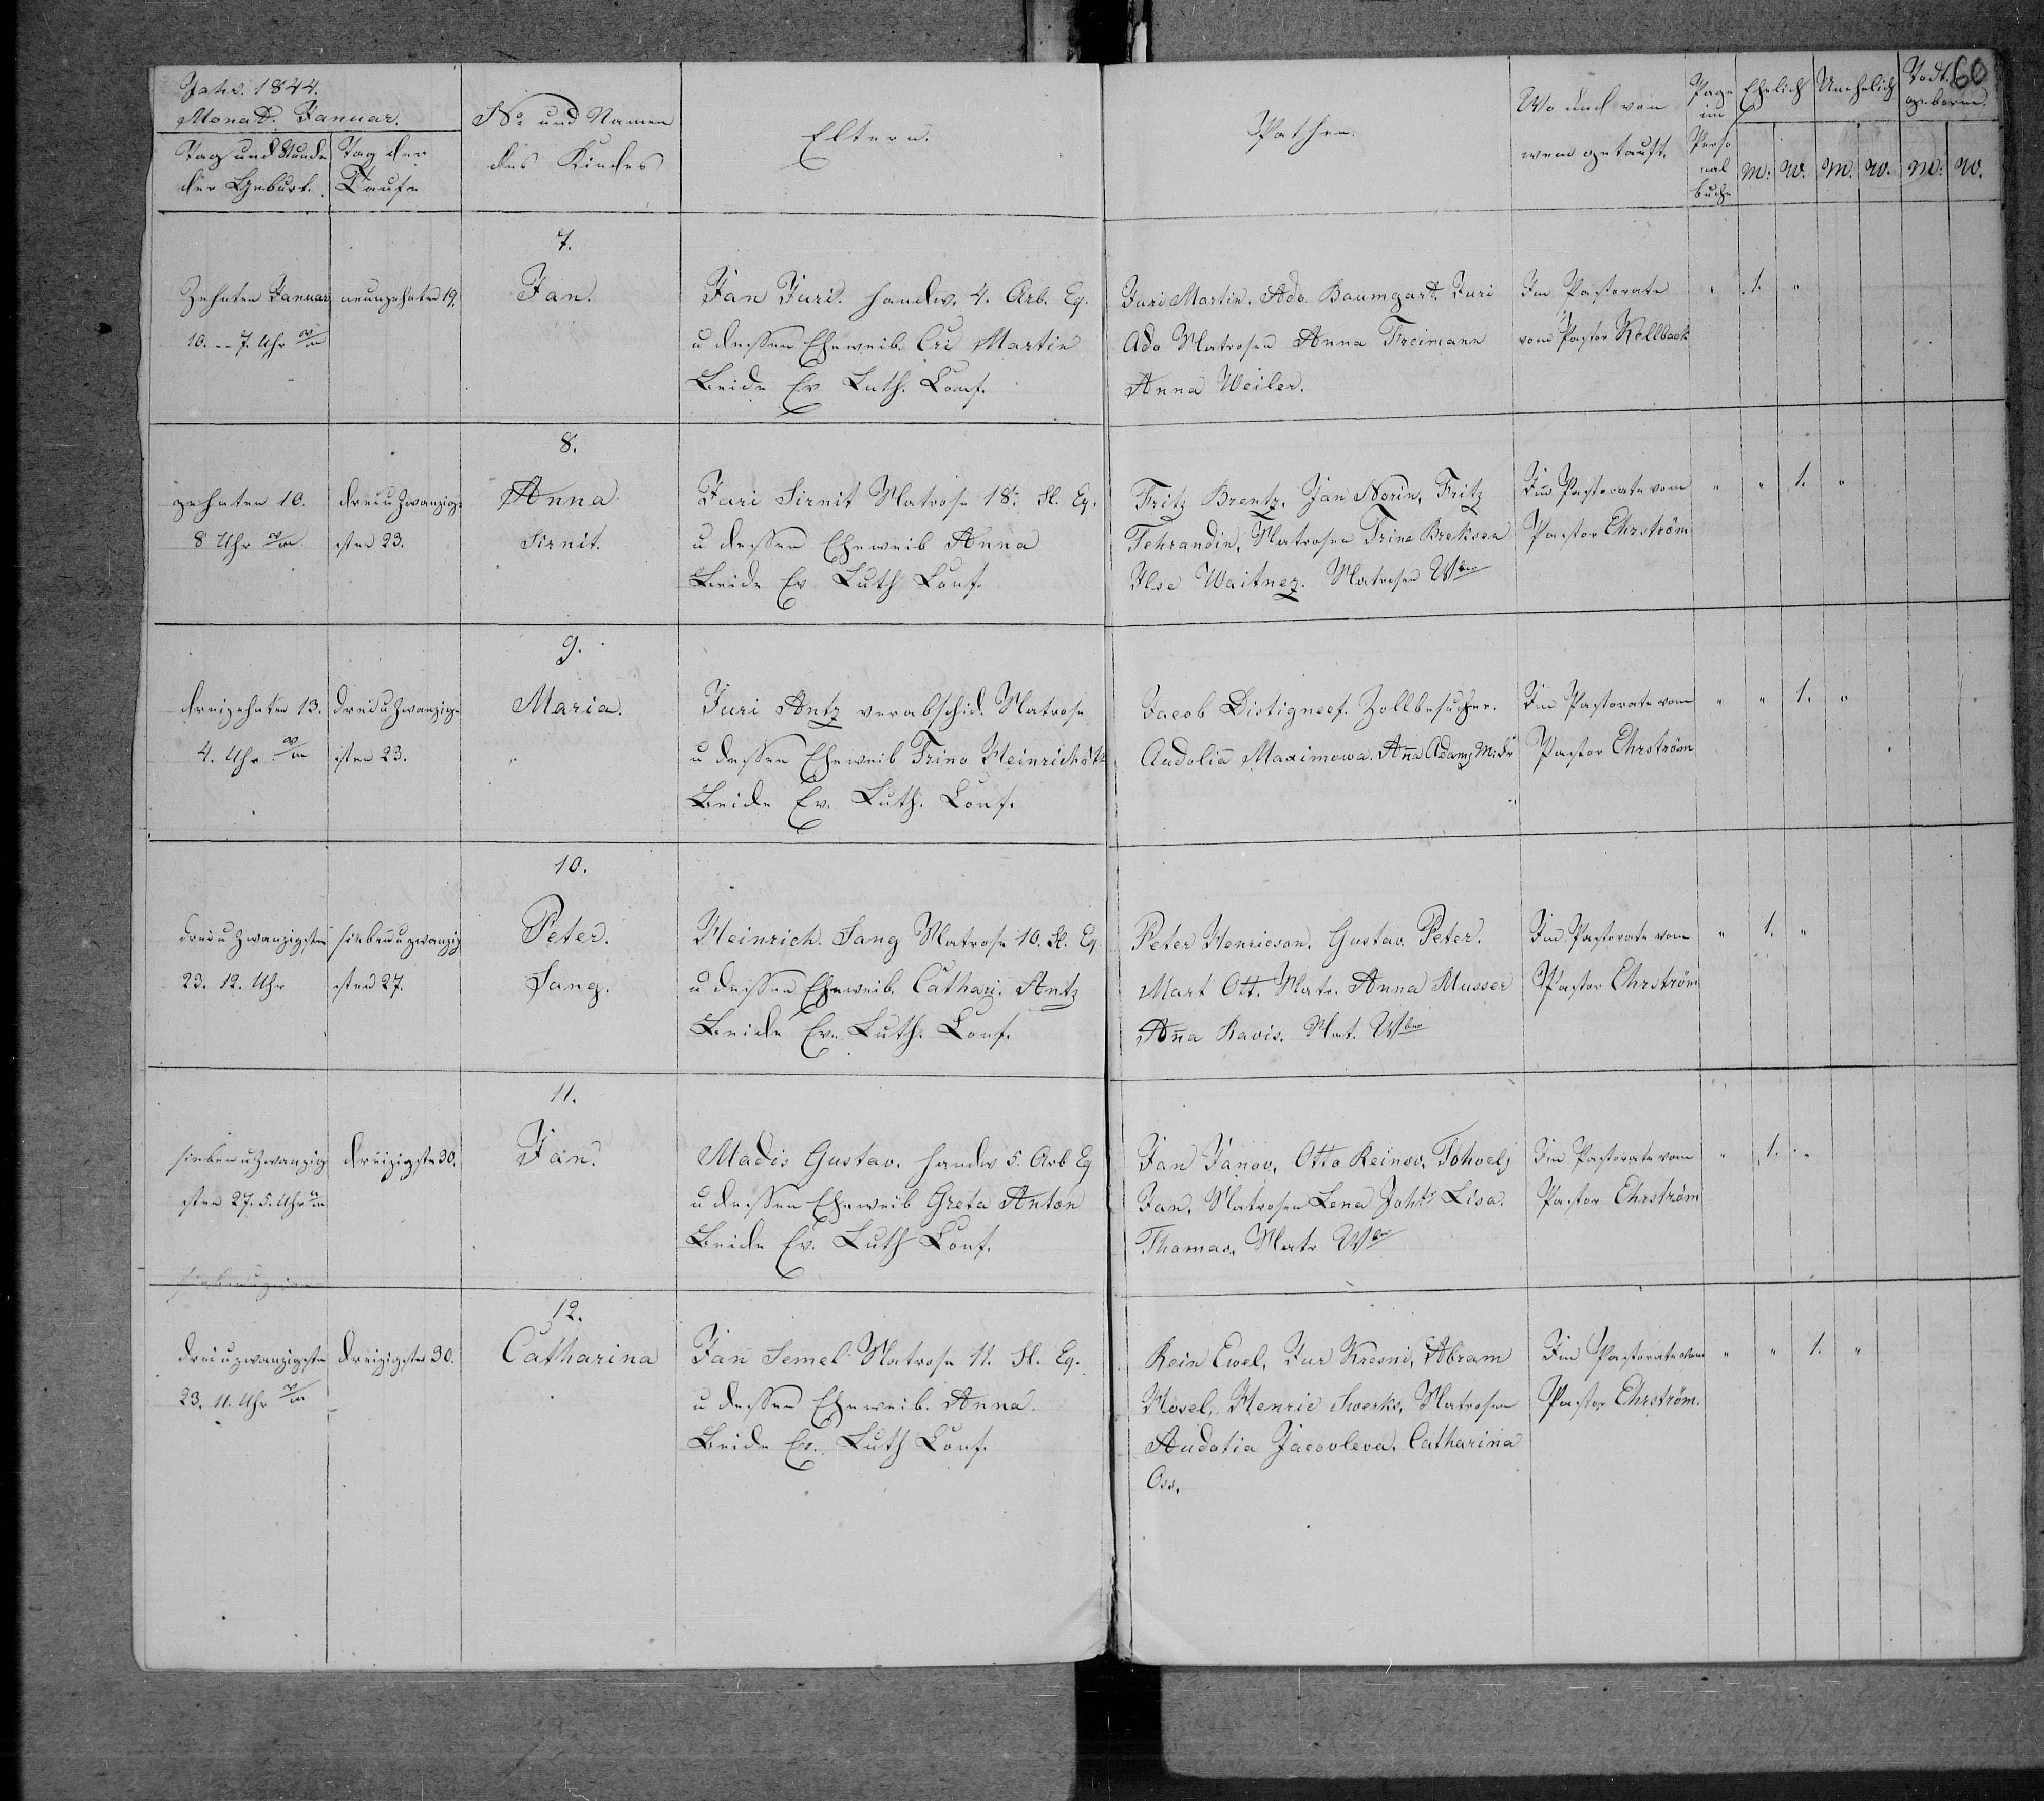 60
Jahr. 1844.
Monat. Januar.
Tag und Stunde
der Geburt.
Tag der
Taufe
No und Namen
des Kindes
Eltern.
Pathen.
Wo und von
wem getauft.
Page
im
Perso
nal
buche
Ehelich
Unehelich
Todt
geboren.
m. w. m. w. m. w.
7.
Zehnten Januar
10. -- 7. Uhr
neunzehnten 19.
Jan.
Jan Juri. Handw. 4. Arb. Eq.
u dessen Eheweib Cri Martin
Beide Ev Luth. Conf.
Juri Martin. Ado Baumgart. Juri
Ado Matrosen Anna Freimann
Anna Weiler.
Im Pastorate
vom Pastor Kellback
" 1. "
8.
zehnten 10.
8 Uhr
dreiu Zwanzig=
sten 23.
Anna
Sirnit.
Juri Sirnit Matrose 18. Fl. Eq.
u dessen Eheweib Anna
Beide Ev Luth Conf.
Fritz Brentz. Jan Norin, Fritz
Fehrandin, Matrosen Trine Breksen
Ilse Waitnez. Matrosen Wber
Im Pastorate vom
Pastor Ehrström
" " 1. "
9.
dreizehnten 13.
4. Uhr
dreiu Zwanzig=
sten 23.
Maria.
Juri Antz verabschid. Matrose
u dessen Eheweib Trino Heinrich
Beide Ev. Luth. Conf.
Jacob Distigneef. Zollbesucher.
Audolia Maximowa. Ana Adams
Im Pastorate vom
Pastor Ehrström
" " 1. "
10.
dreiu Zwanzigsten
23. 12. Uhr
siebenu zwanzig
sten 27.
Peter.
Sang.
Heinrich. Sang Matrose 10. Fl. Eq.
u dessen Eheweib. Cathari. Antz
Beide Ev. Luth. Conf.
Peter Henricson. Gustav. Peter.
Mart Ott. Matr. Anna Musser
Ana Ravis. Mat. Wber
Im Pastorate vom
Pastor Ehrström
" 1. "
11.
siebenu Zwanzig
sten 27. 5. Uhr
dreizigsten 30.
Jan.
Madis Gustav. Handw 5. Arb Eq
u dessen Eheweib Greta Anton
Beide Ev. Luth Conf.
Jan Janov, Otto Reinov, Tohvels
Jan, Matrosen Lena Lisa.
Thomas, Matr Wber
Im Pastorate vom
Pastor Ehrström
" 1. "
12.
dreiuzwanzigsten
23. 11. Uhr
dreizigsten 30.
Catharina
Jan Semel Matrose 11. Fl. Eq.
u dessen Eheweib. Anna.
Beide Ev. Luth Conf.
Rein Ewel, Jur Kresni, Abram
Mosel, Henric Swerks, Matrosen
Audotia Jacovleva. Catharina
Oss.
Im Pastorate vom
Pastor Ehrström.
" " 1. "